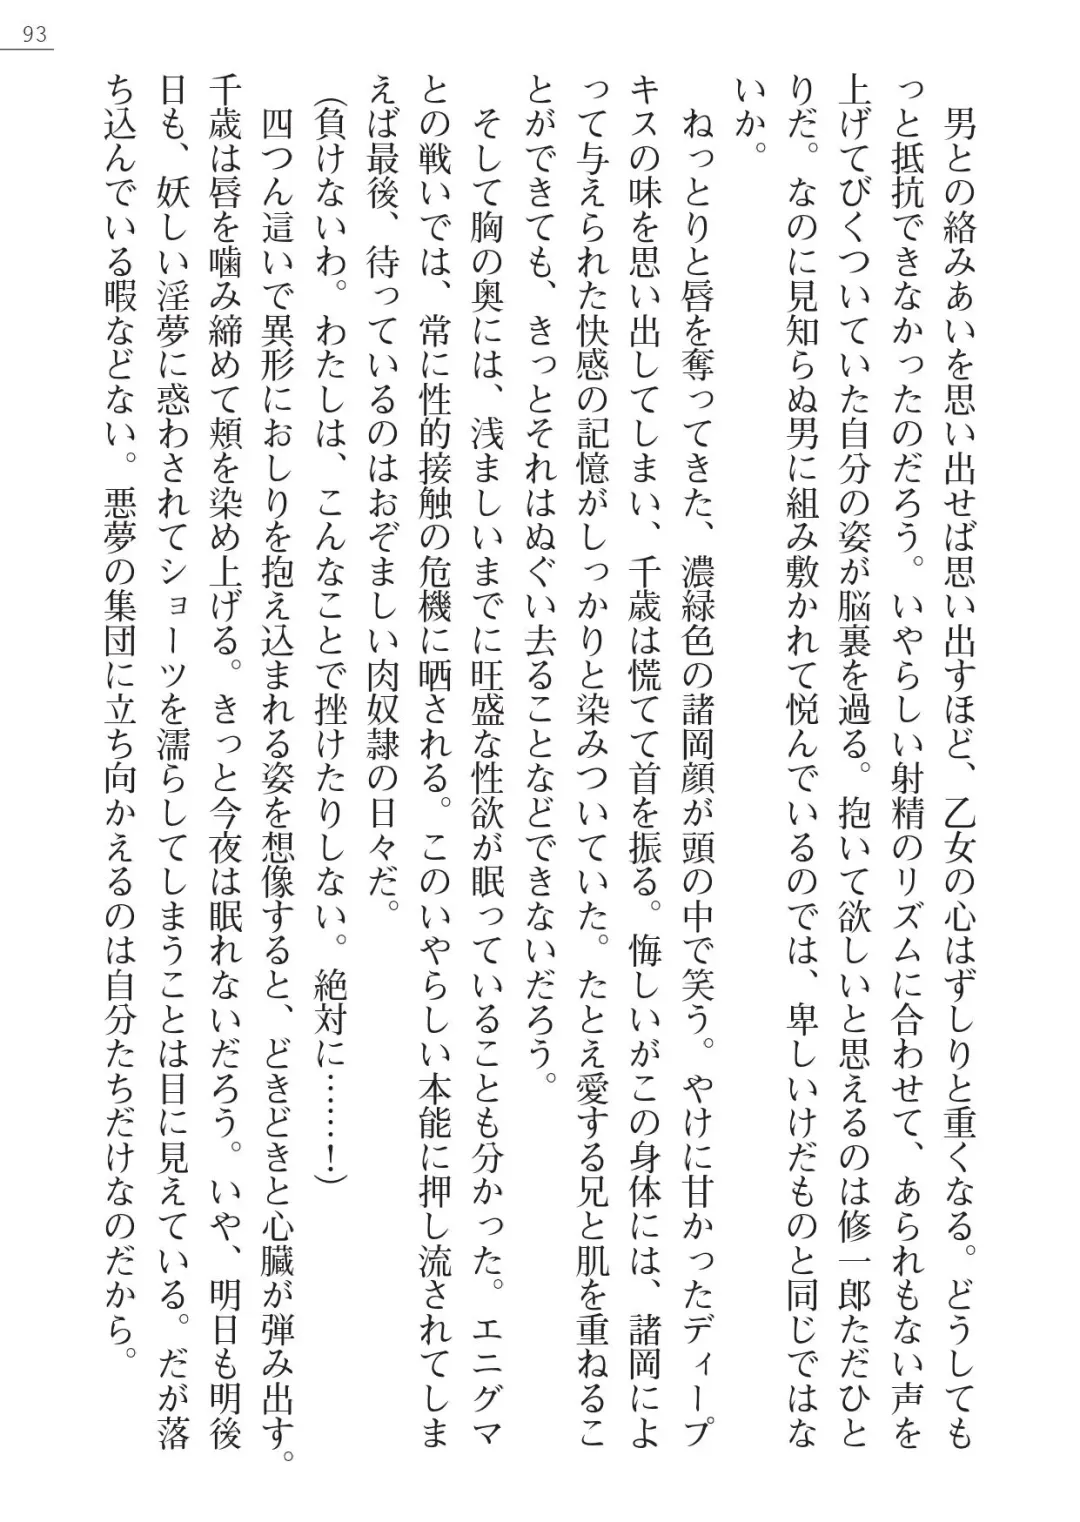 93
男との絡みあいを思い出せば思い出すほど、乙女の心はずしりと重くなる。どうしても
っと抵抗できなかったのだろう。いやらしい射精のリズムに合わせて、あられもない声を
上げてびくついていた自分の姿が脳裏を過る。抱いて欲しいと思えるのは修一郎ただひと
りだ。なのに見知らぬ男に組み敷かれて悦んでいるのでは、卑しいけだものと同じではな
いか。
ねっとりと唇を奪ってきた、濃緑色の諸岡顔が頭の中で笑う。やけに甘かったディープ
キスの味を思い出してしまい、千歳は慌てて首を振る。悔しいがこの身体には、諸岡によ
って与えられた快感の記憶がしっかりと染みついていた。たとえ愛する兄と肌を重ねるこ
とができても、きっとそれはぬぐい去ることなどできないだろう。
そして胸の奥には、浅ましいまでに旺盛な性欲が眠っていることも分かった。エニグマ
との戦いでは、常に性的接触の危機に晒される。このいやらしい本能に押し流されてしま
えば最後、待っているのはおぞましい肉奴隷の日々だ。
（負けないわ。わたしは、こんなことで挫けたりしない。絶対に……！）
四つん這いで異形におしりを抱え込まれる姿を想像すると、どきどきと心臓が弾み出す。
千歳は唇を噛み締めて頬を染め上げる。きっと今夜は眠れないだろう。いや、明日も明後
日も、妖しい淫夢に惑わされてショーツを濡らしてしまうことは目に見えている。だが落
ち込んでいる暇などない。悪夢の集団に立ち向かえるのは自分たちだけなのだから。